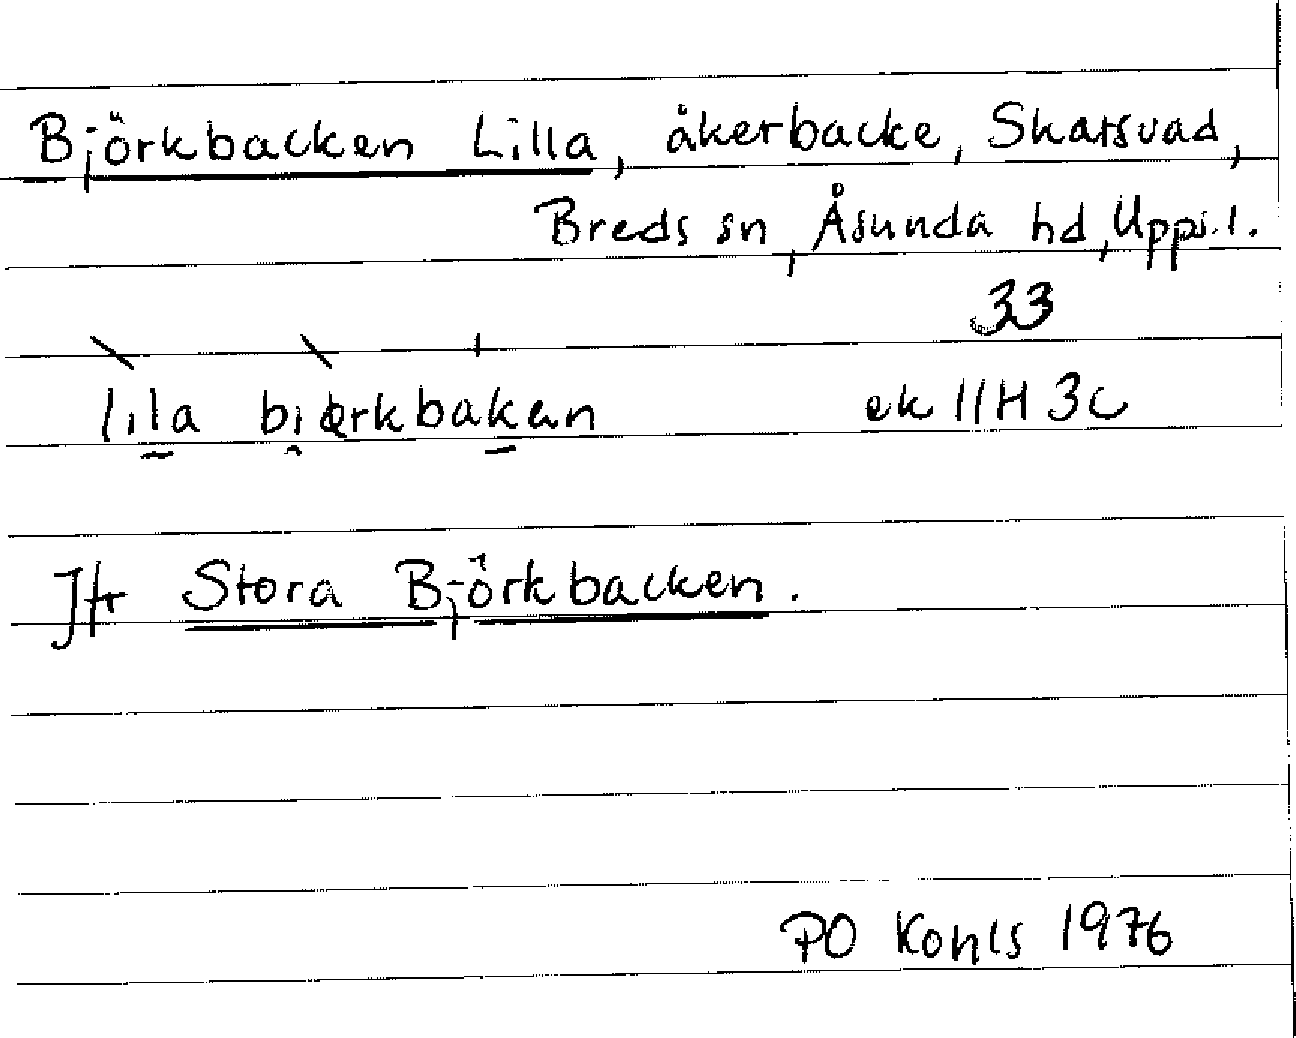 Björkbacken Lilla, åkerbacke, Skarsvad,
Breds sn, Åsunda hd, Upps.l.
33
lila biörkbakan ek 11H 3c
Jfr Stora Björkbacken.
PO 1976